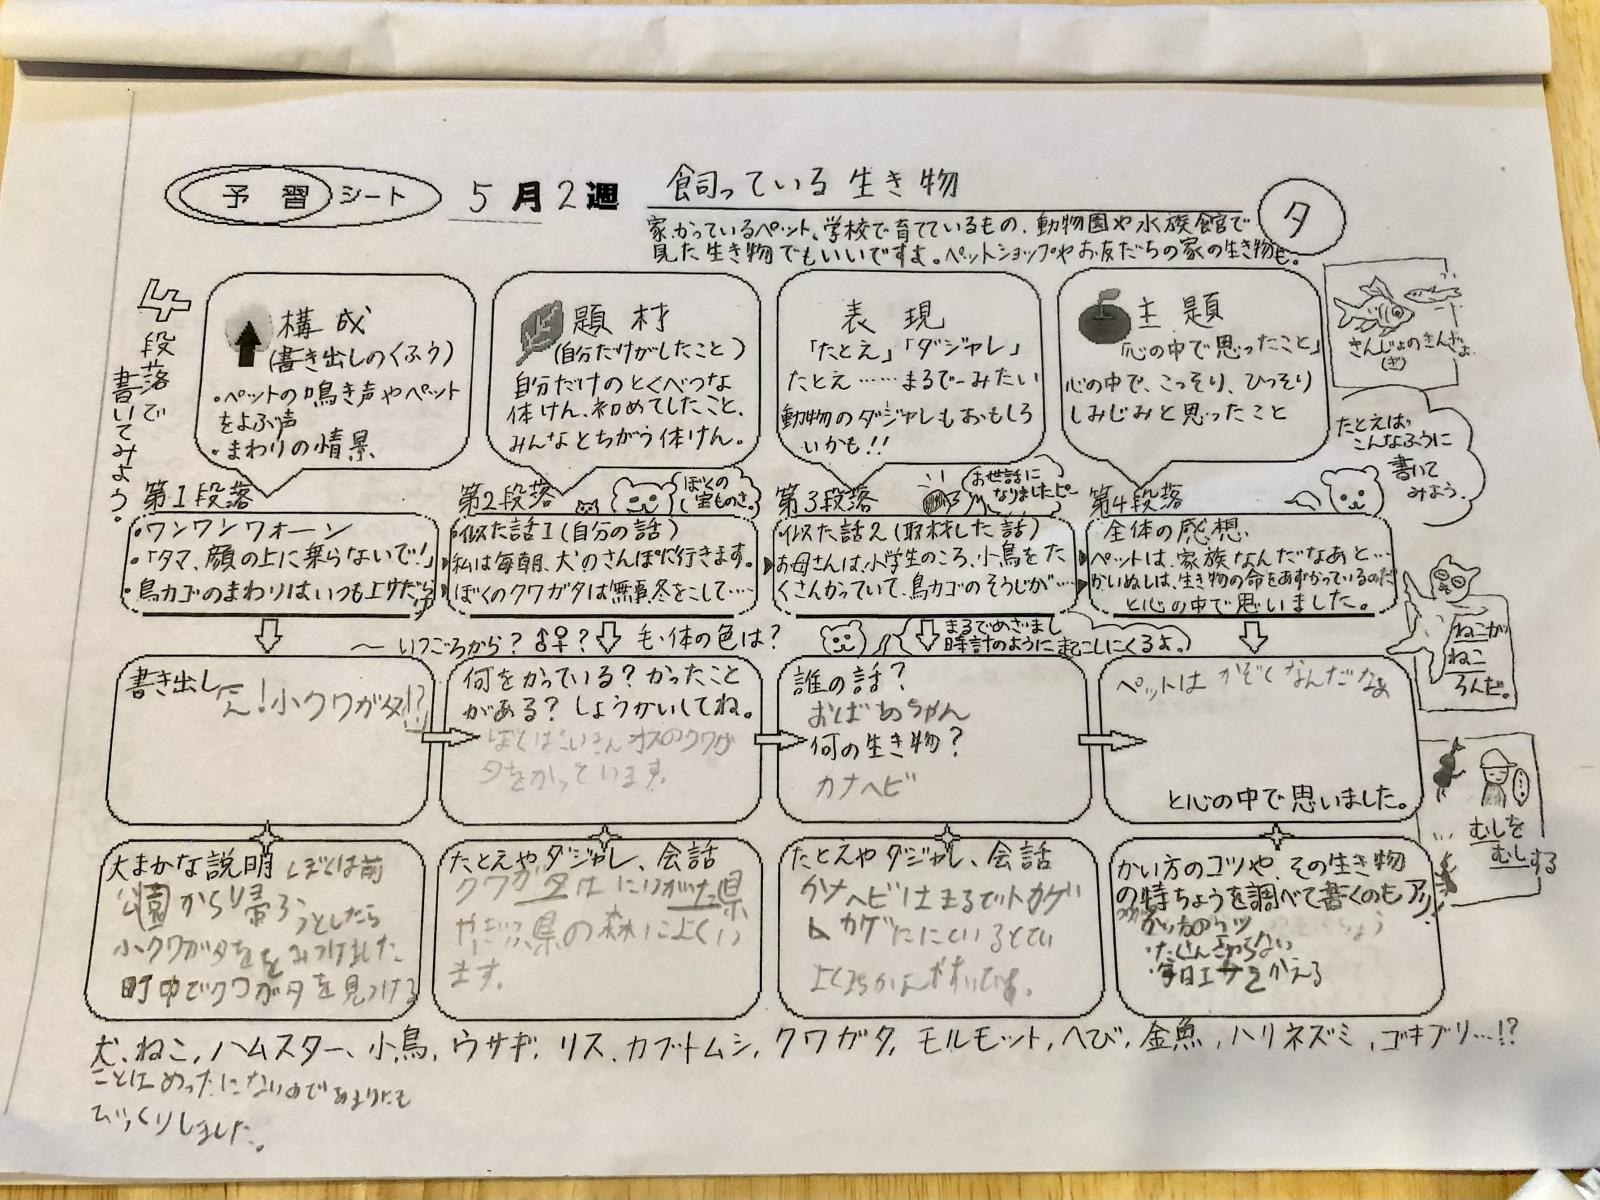 予習シート 5月2週 飼っている生き物
タ
家、かっているペット、学校で育てているもの、動物園や水族館で
見た生き物でもいいですよ。ペットショップやお友だちの家の生き物も。
4段落で
書いてみよう。
構成
(書き出しのくふう)
・ペットの鳴き声やペット
をよぶ声
・まわりの情景
題材
(自分だけがしたこと)
自分だけのとくべつな
体けん、初めてしたこと、
みんなとちがう体けん。
表現
「たとえ」「ダジャレ」
たとえ……まるで〜みたい
動物のダジャレもおもしろ
いかも!!
主題
「心の中で思ったこと」
心の中で、こっそり、ひっそり
しみじみと思ったこと
さんじょのきんぎょ
(ぎ)
たとえば、
こんなふうに
書いて
みよう。
第1段落
・ワンワンウォーン
・「タマ、顔の上に乗らないで!」
・鳥カゴのまわりはいつも上サだらけ
第2段落
ぼくの
宝ものさ。
似た話1(自分の話)
私は毎朝、犬のさんぽに行きます。
ぼくのクワガタは無事、冬をこして……
第3段落
お世話に
なりましたピー
似た話2(取材した話)
お母さんは、小学生のころ、小鳥をた
くさんかっていて、鳥カゴのそうじが……
第4段落
全体の感想
ペットは、家族なんだなあと…
かいぬしは、生き物の命をあずかっているのだ
と心の中で思いました。
〜いつごろから?♂♀? 毛・体の色は?
まるでめざまし
時計のように起こしにくるよ。
ねこが
ねこ
ろんだ。
書き出し
え!小クワガタ!?
何をかっている?かったこと
がある?しょうかいしてね。
ぼくはさいきんオスのクワガ
タをかっています。
誰の話?
おばあちゃん
何の生き物?
カナヘビ
ペットはかぞくなんだなぁ
と心の中で思いました。
むしを
むしする
大まかな説明 ぼくは前
公園から帰ろうとしたら
小クワガタををみつけました
町中でクワガタを見つける
たとえやダジャレ、会話
クワガタはにいがた県
やぎふ県の森によくい
ます。
たとえやダジャレ、会話
カナヘビはまるでトカゲ
トカゲに
かい方のコツや、その生き物
の特ちょうを調べて書くのもアリ!
かい方のコツ
・たくさんさわらない
・毎日エサをかえる
犬、ねこ、ハムスター、小鳥、ウサギ、リス、カブトムシ、クワガタ、モルモット、へび、金魚、ハリネズミ、ゴキブリ…!?
ことはめったにないのであまりにも
びっくりしました。